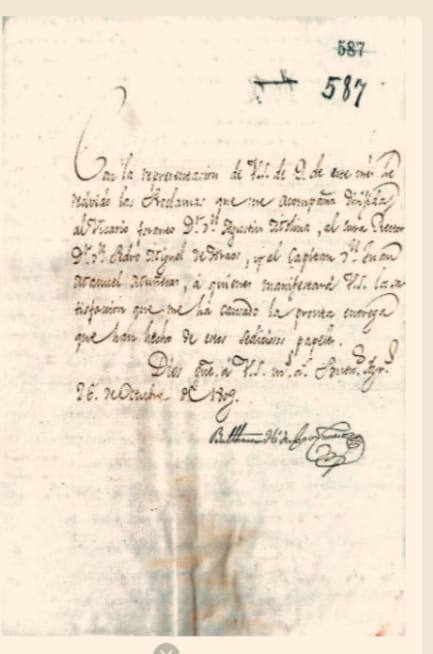 587
587
Con la representacion de V.S. de 9. de este mes he
recivido las Proclamas que me acompaña dirijidas
al Vicario foraneo Dr. Dn. Agustin Molina, al Cura Rector
Dr. Dn. Pedro Miguel de Araos, y el Capitan Dn. Juan
Manuel Muñecas, á quienes manifestará V.S. la sa-
tisfaccion que me há causado la pronta entrega
que han hecho de estos sediciosos papeles.
Dios gue. á V.S. ms. as.
26. de Octubre de 1809.
Balthasar